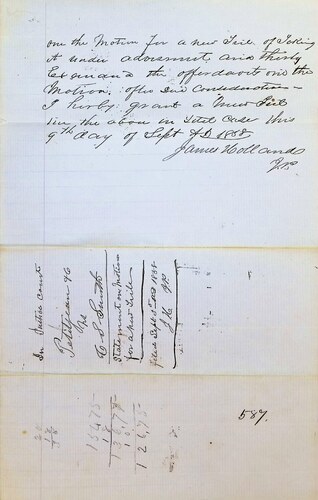 on the Motion for a new Trile of Taking
it under advisment, and thirdly
Examand the affordavits on the
Motion. after Due Consideration -
I hirby grant a new Trile
in the above in titel Case this
9th day of Sept AD 1868
James Holland
J.P.
In Justice Court
Petitjean & Co
Vs
C S Smith
Statement on Motion
for a New Trile
filed Sept 9th AD 1868
J H J.P.
587.